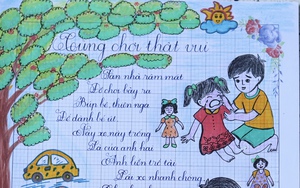 Cùng chơi thật vui
Sân nhà râm mát
Đồ chơi bày ra
Búp bê, thiên nga
Để dành bé út.
Này xe, này trống
Là của anh hai
Anh liền trổ tài
Lái xe nhanh chóng